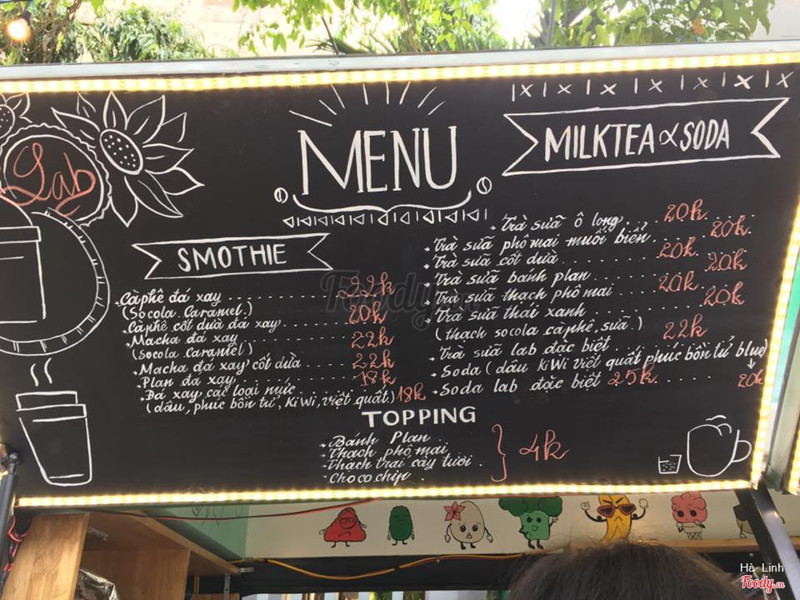 Lab
MENU
MILKTEA & SODA
SMOTHIE
Càphê đá xay 22k
(Socola Caramel)
Càphê cốt dừa đá xay 20k
Macha đá xay 22k
(Socola caramel)
Macha đá xay cốt dừa 22k
Plan đá xay 18k
Đá xay các loại mức 18k
(dâu, phúc bồn tử, KiWi, việt quất)
Trà sữa ô long 20k
Trà sữa phô mai muối biển 20k
Trà sữa cốt dừa 20k
Trà sữa bánh plan 20k
Trà sữa thạch phô mai 20k
Trà sữa thái xanh 20k
(thạch socola càphê sữa)
Trà sữa lab đặc biệt 22k
Soda (dâu KiWi việt quất phúc bồn tử blue)
20k
Soda lab đặc biệt 25k
TOPPING
Bánh Plan
Thạch phô mai
Thạch trái cây tươi
Choco chip
4k
Foody
Hà Linh
Foody.vn